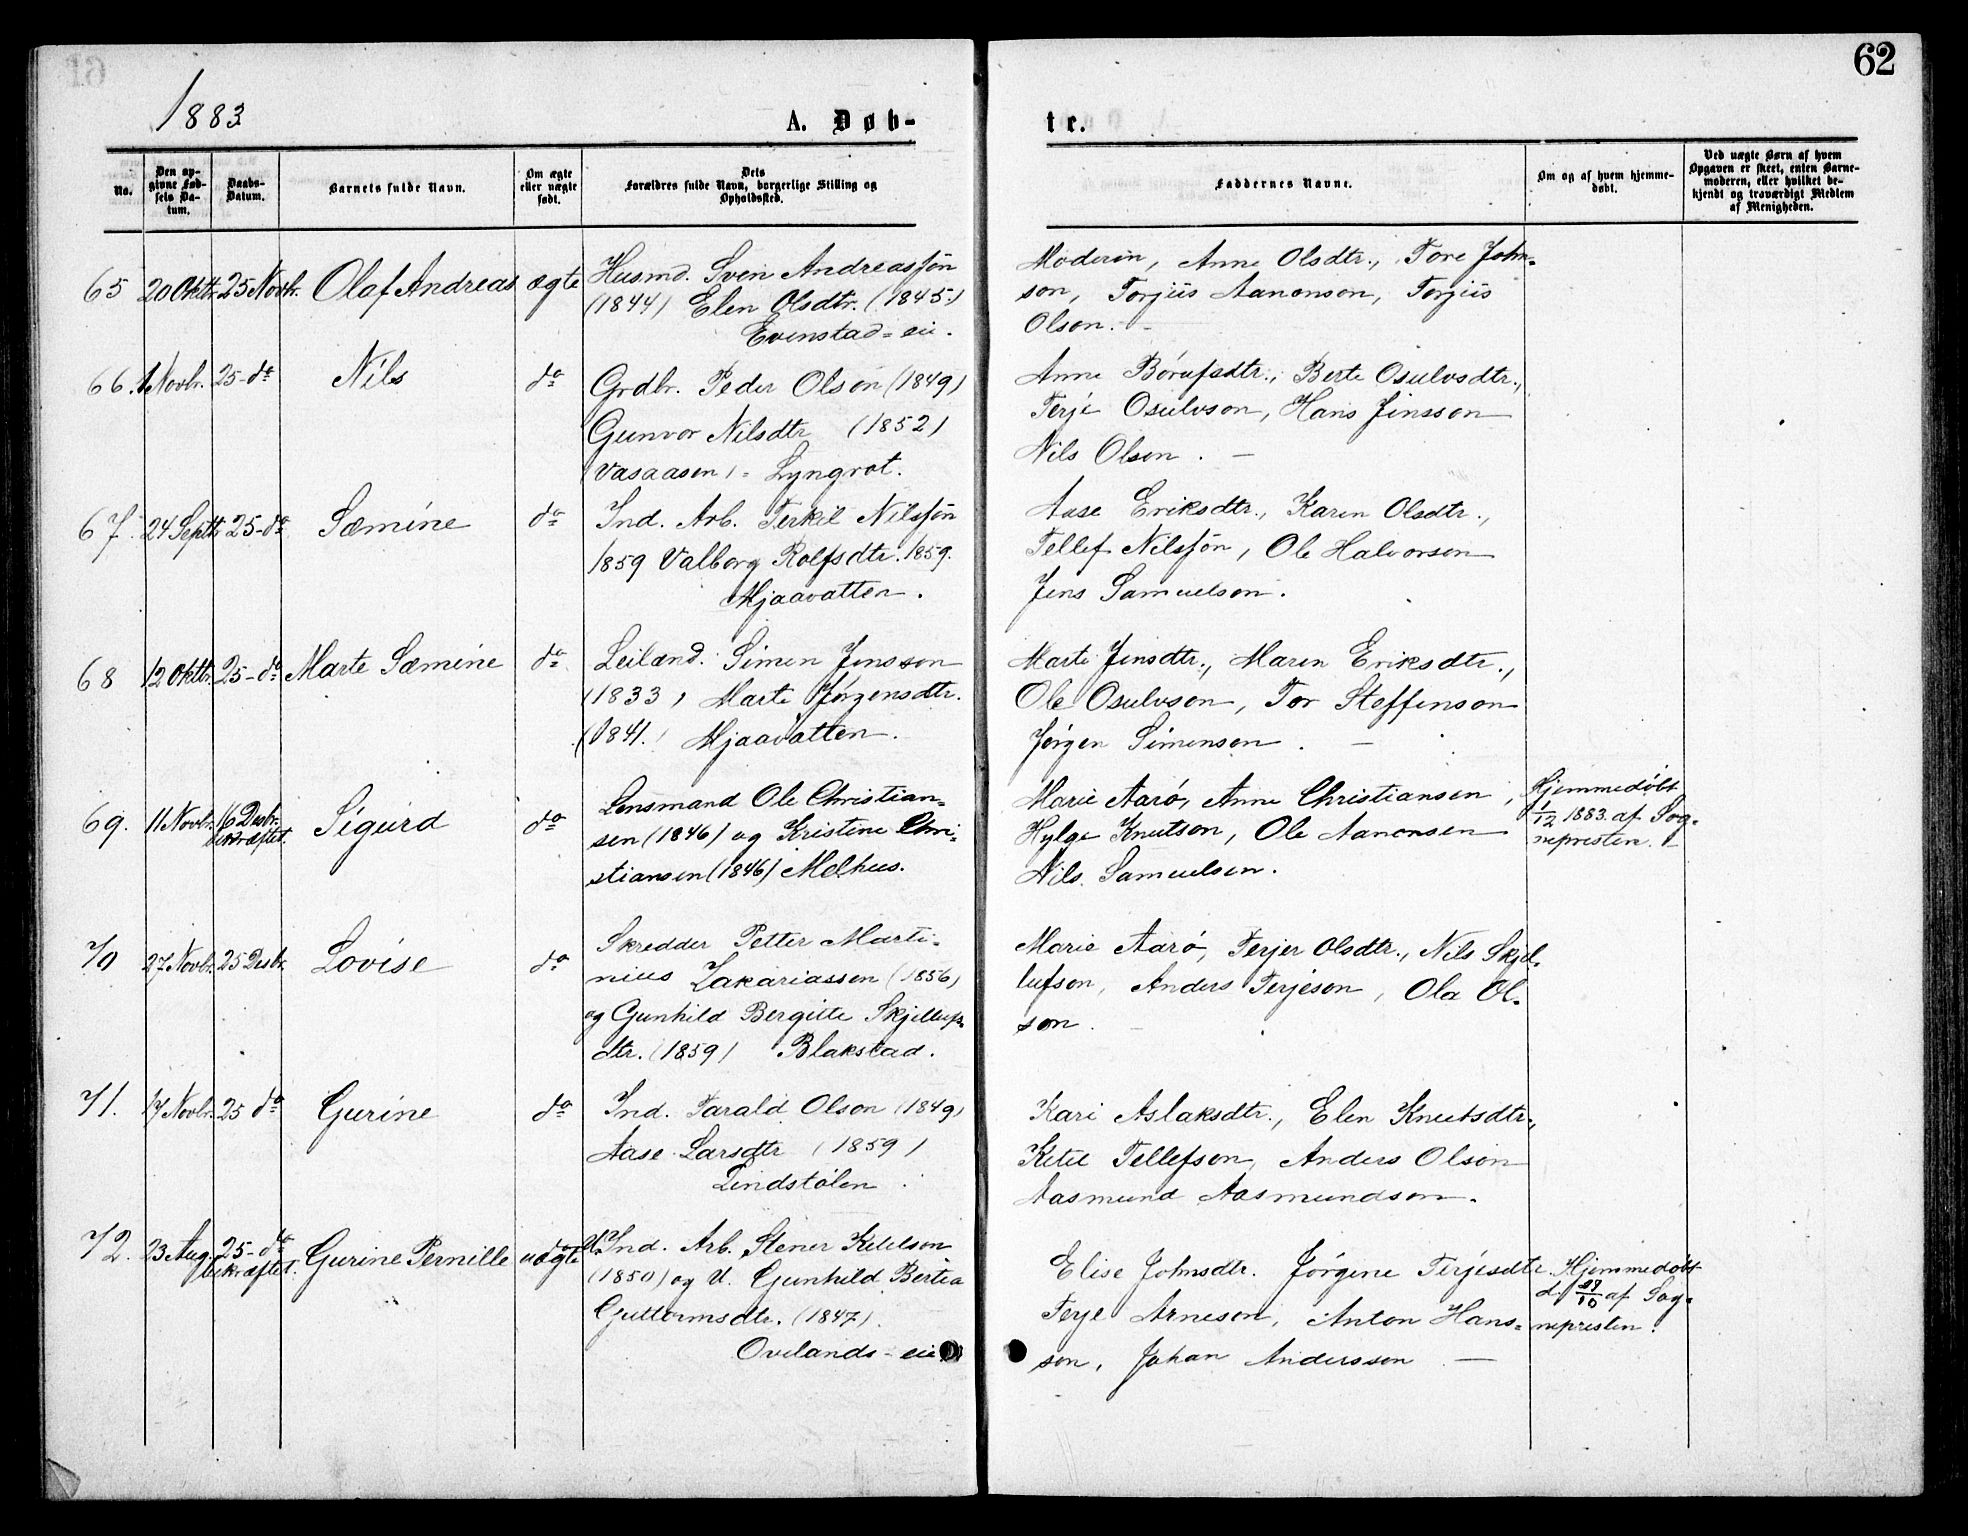 62
1883
A. Døb-
te.
No.
Den op-
givne Fød-
sels Da-
tum.
Daabs-
Datum.
Barnets fulde Navn.
Om ægte
eller uægte
født.
Dets
Forældres fulde Navn, borgerlige Stilling og
Opholdssted.
Faddernes Navne.
Om og af hvem hjemme-
døbt.
Ved uægte Børn af hvem
Opgaven er skeet, enten Barne-
moderen, eller hvilket be-
kjendt og troværdigt Medlem
af Menigheden.
65 20 Oktbr. 25 Novbr. Olaf Andreas ægte Husmd. Sven Andreassøn
(1844) Elen Olsdtr. (1845)
Evenstad-eie.
Moderen, Anne Olsdtr., Tore John-
son, Torjus Aanonson, Torjus
Olson. -
66. 1 Novbr. 25 - do Nils do Grdbr. Peder Olson (1849)
Gunvor Nilsdtr (1852)
(Vasaasen) = Lyngrot.
Anne Børufsdtr., Berte Osulvsdtr.,
Terje Osulvson, Hans Jensson
Nils Olson. -
67. 24 Septbr. 25 - do Sæmine do Ind. Arb. Terkil Nilssøn
1859 Valborg Rolfsdtr. 1859.
Mjaavatten.
Aase Eriksdtr., Karen Olsdtr.,
Tellef Nilssøn, Ole Halvorson
Jens Samuelson.
68 12 Oktbr. 25 - do Marte Sæmine do Leilænd. Simen Jensson
(1833) Marte Jørgensdtr.
(1841.) Mjaavatten.
Marte Jensdtr., Maren Eriksdtr.,
Ole Osulvson, Tor Steffenson
Jørgen Simenson. -
69. 11 Novbr. 16 Desbr. bekræftet. Sigurd do Lensmand Ole Christian-
sen (1846) og Kristine Chri-
stiansen (1846) Melhus.
Marie Aarø, Anne Christiansen,
Hylge Knutson, Ole Aanonsen
Nils Samuelsen.
Hjemmedøbt
1/12 1883 af Sog-
nepresten.
70 27 Novbr. 25 Desbr. Lovise do Skredder Petter Marti-
nius Zakariassen (1856)
og Gunhild Bergitte Skjellufs-
dtr. (1859) Blakstad.
Marie Aarø, Terjer Olsdtr., Nils Skjel-
lufson, Anders Terjeson, Ola Ol-
son. -
71. 17 Novbr. 25 do Gurine do Ind. Tarald Olson (1849)
Aase Larsdtr (1859)
Lindstølen.
Kari Aslaksdtr., Elen Knutsdtr.,
Ketil Tellefson, Anders Olson
Aasmund Aasmundson.
72. 23 Aug. 25 - do bekræftet. Gurine Pernille uægte U. Ind. Arb. Stener Ketelson
(1850) og U. Gunhild Bertea
Guttormsdtr. (1847).
Ovelands-eie
Elise Johnsdtr. Jørgine Terjesdtr.
Terje Arneson, Anton Hans-
son, Johan Andersson -
Hjemmedøbt
d. 29/10 af Sog-
nepresten.